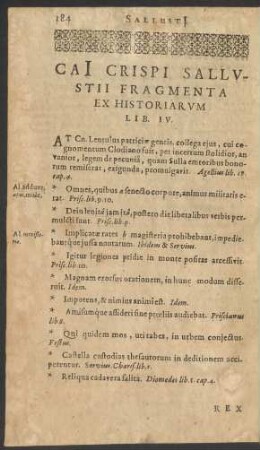 184 SALLUSTI
CAI CRISPI SALLV-
STII FRAGMENTA
EX HISTORIARVM
LIB. IV.
AT Cn. Lentulus patriciæ gentis, collega ejus, cui co-
gnomentum Clodiano fuit, per incertum stolidior, an
vanior, legem de pecuniâ, quam Sulla emtoribus bono-
rum remiserat, exigunda, promulgavit. Agellius lib. 17.
cap. 4.
* Omnes, quibus a senecto corpore, animus militaris e-
rat. Prisc. lib. 9. 10.
* Dein lenitâ jam irâ, postero die liberalibus verbis per-
mulcti sunt. Prisc. lib. 9.
* Implicatæ rates magisteria prohibebant, impedie-
bantque jussa nautarum. Ibidem & Servius.
* Igitur legiones pridie in monte positas arcessivit.
Prisc. lib. 10.
* Magnam exorsus orationem, in hunc modum disse-
ruit. Idem.
* Impotens, & nimius animi est. Idem.
* Amisumque assideri sine prœliis audiebat. Priscianus
lib. 8.
* Qui quidem mos, uti tabes, in urbem conjectus.
Festus.
* Castella custodias thesaurorum in deditionem acci-
perentur. Servius. Charis. lib. 1.
* Reliqua cadavera salita. Diomedes lib. 1. cap. 4.
REX